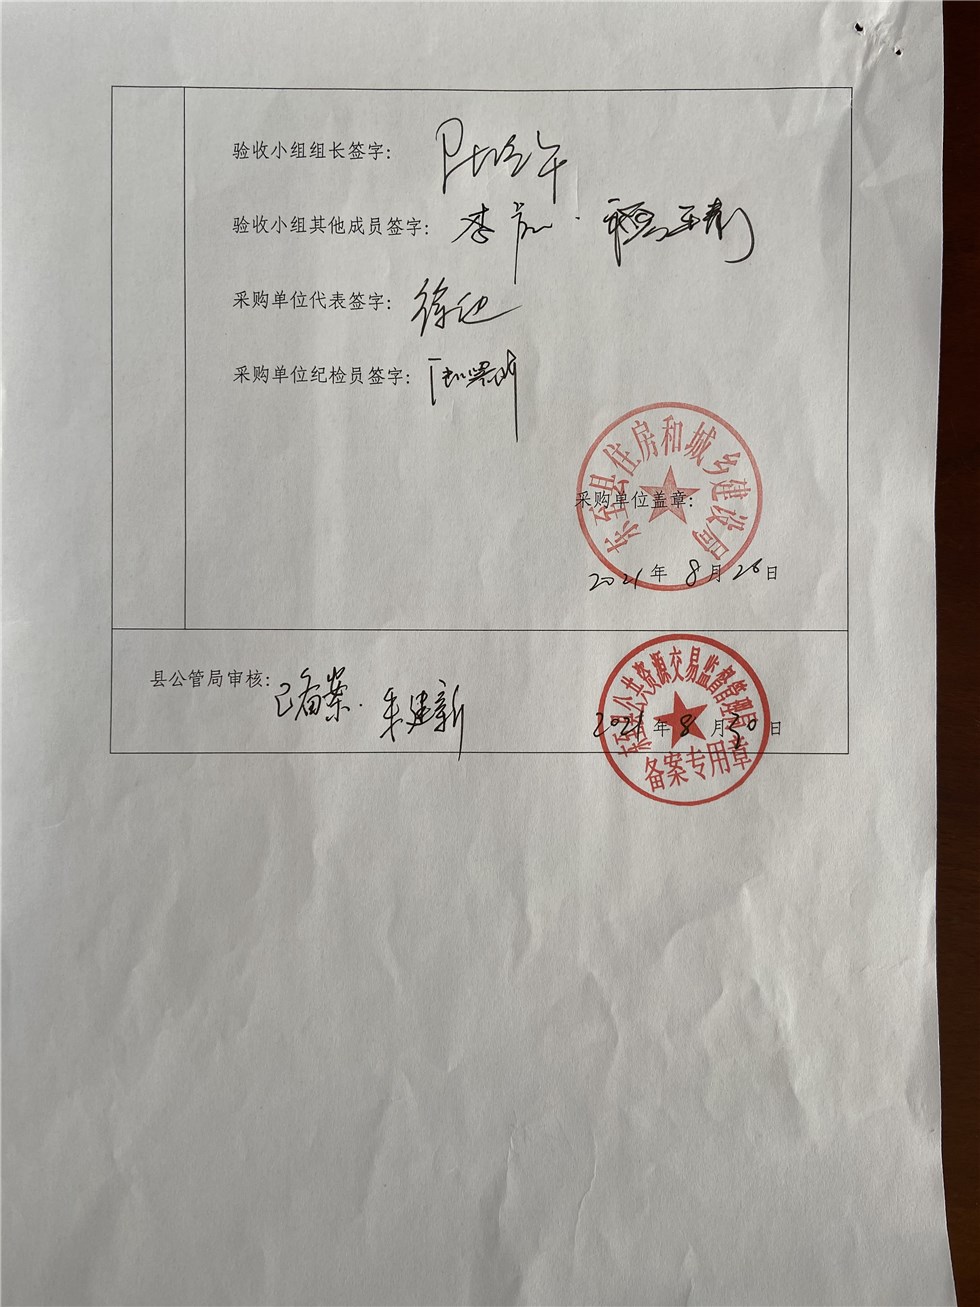 验收小组组长签字：
验收小组其他成员签字：李
采购单位代表签字：徐
采购单位纪检员签字：
东至县住房和城乡建设局
采购单位盖章：
2021年 8月 26日
县公管局审核：已备案. 朱建新
东至县公共资源交易监督管理局
2021年 8月30日
备案专用章